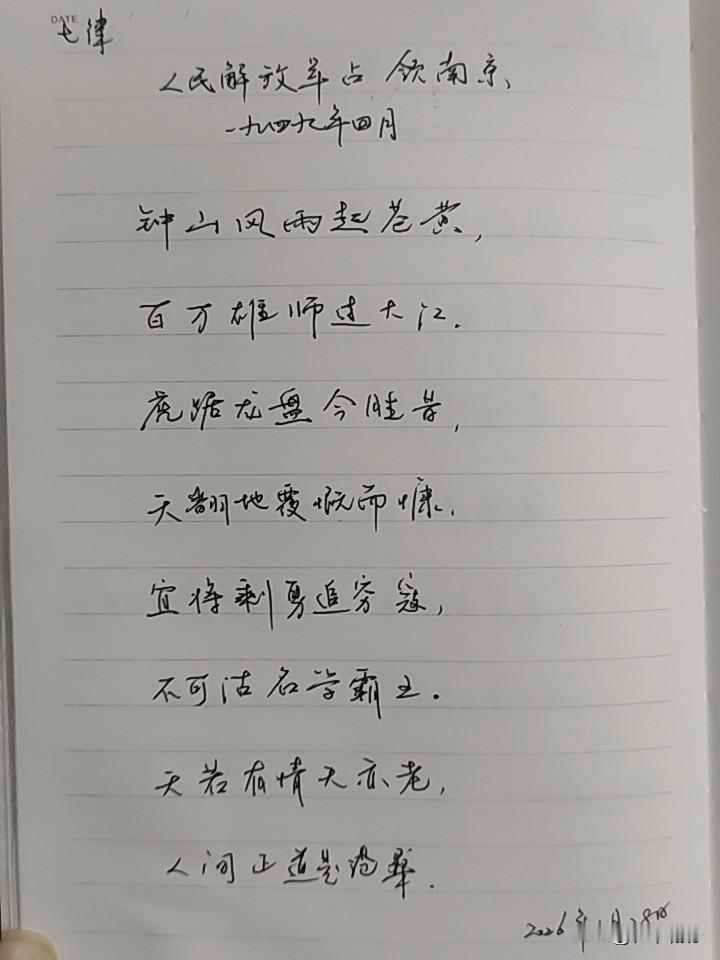 DATE
七律
人民解放军占领南京、
一九四九年四月
钟山风雨起苍黄,
百万雄师过大江.
虎踞龙盘今胜昔,
天翻地覆慨而慷.
宜将剩勇追穷寇,
不可沽名学霸王.
天若有情天亦老,
人间正道是沧桑.
2026年1月28日